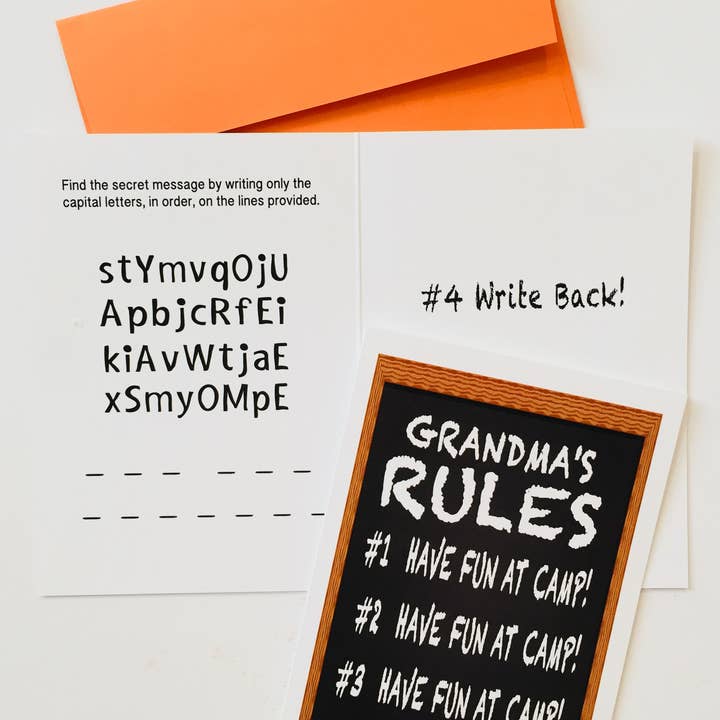 Find the secret message by writing only the
capital letters, in order, on the lines provided.
stYmvqOjU
ApbjcRfEi
kiAvWtjaE
xSmyOMpE
#4 Write Back!
GRANDMA'S
RULES
#1 HAVE FUN AT CAMP!
#2 HAVE FUN AT CAMP!
#3 HAVE FUN AT CAMP!